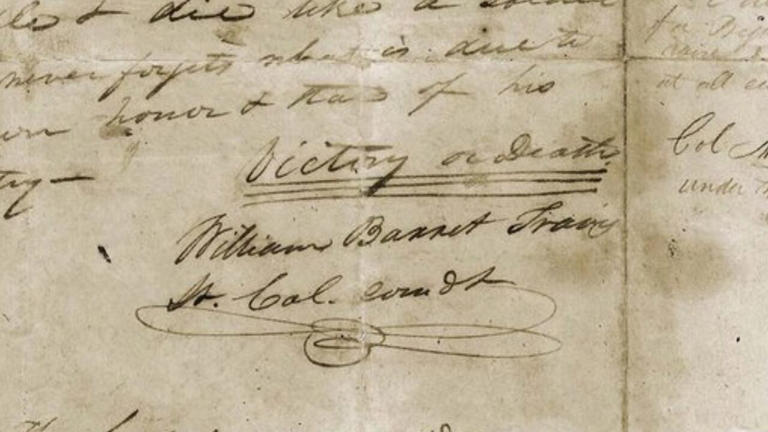 & die like a soldier
never forgets what is due to
own honor & that of his
try —
Victory or Death
William Barret Travis
Lt. Col. comdt
Col
under th
at all